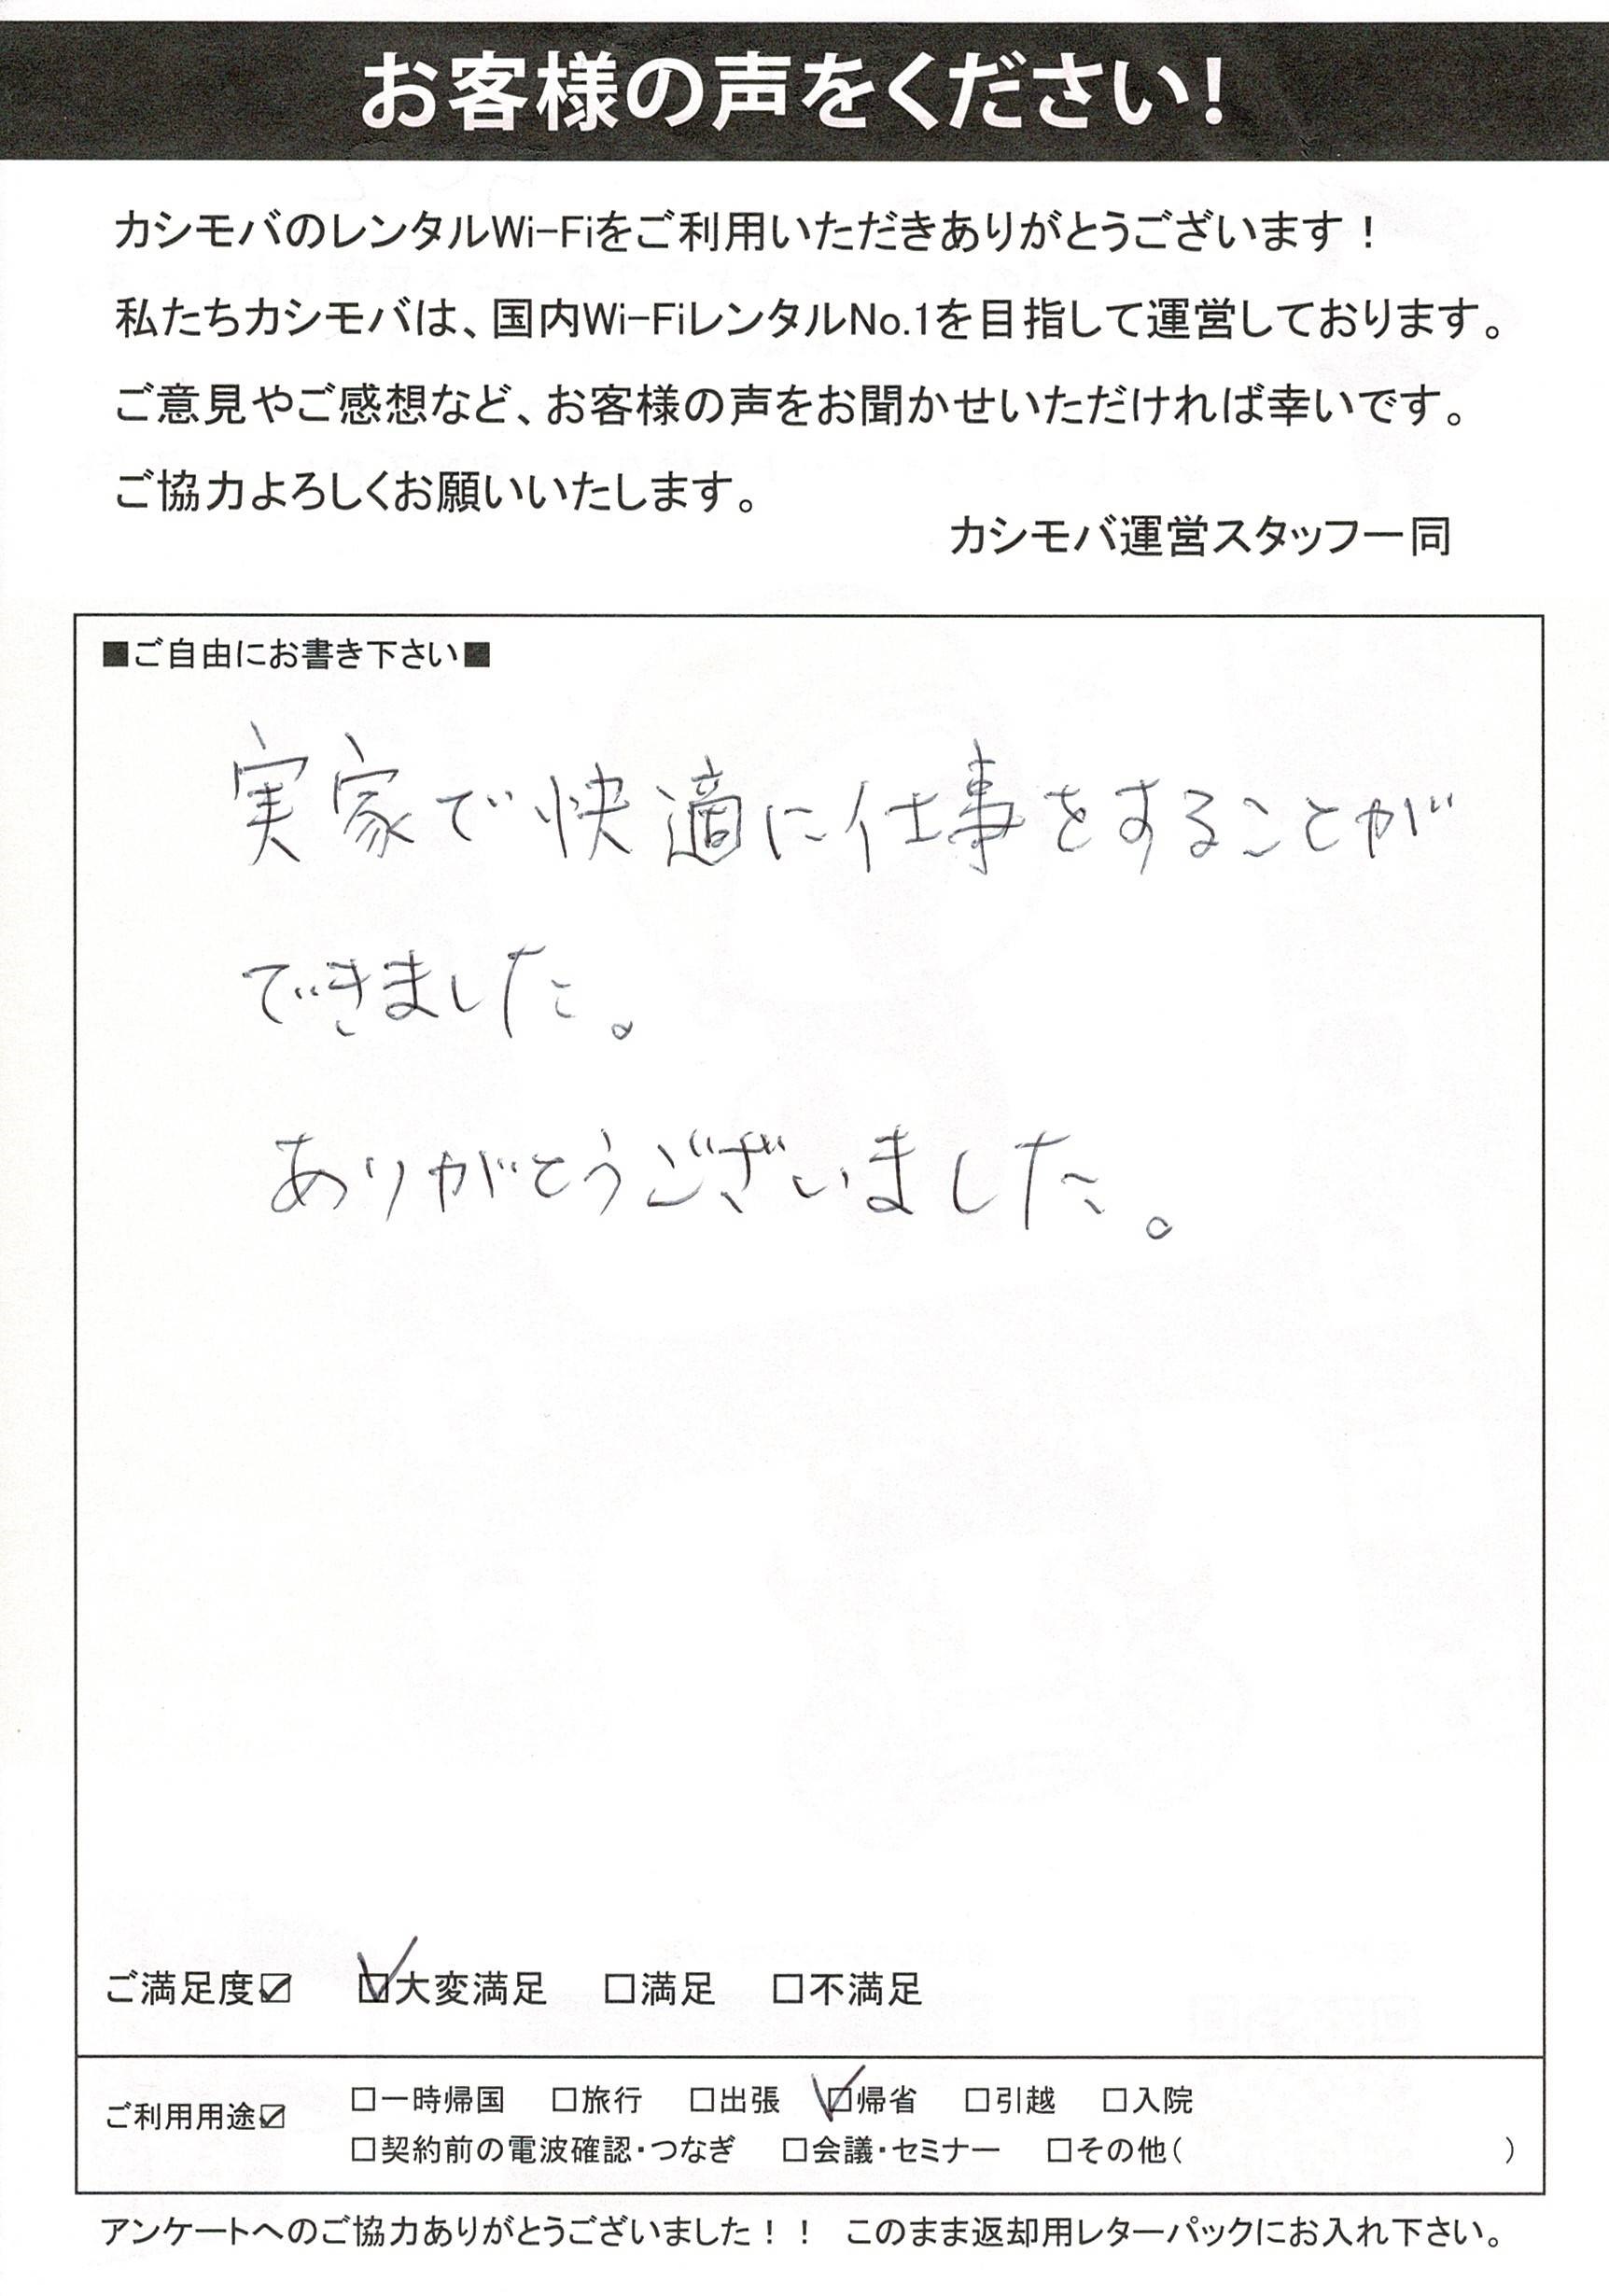 お客様の声をください!
カシモバのレンタルWi-Fiをご利用いただきありがとうございます！
私たちカシモバは、国内Wi-FiレンタルNo.1を目指して運営しております。
ご意見やご感想など、お客様の声をお聞かせいただければ幸いです。
ご協力よろしくお願いいたします。
カシモバ運営スタッフ一同
■ご自由にお書き下さい■
実家で快適に仕事をすることが
できました。
ありがとうございました。
ご満足度☑ ☑大変満足 □満足 □不満足
ご利用用途☑ □一時帰国 □旅行 □出張 ☑帰省 □引越 □入院
□契約前の電波確認・つなぎ □会議・セミナー □その他( )
アンケートへのご協力ありがとうございました！！ このまま返却用レターパックにお入れ下さい。